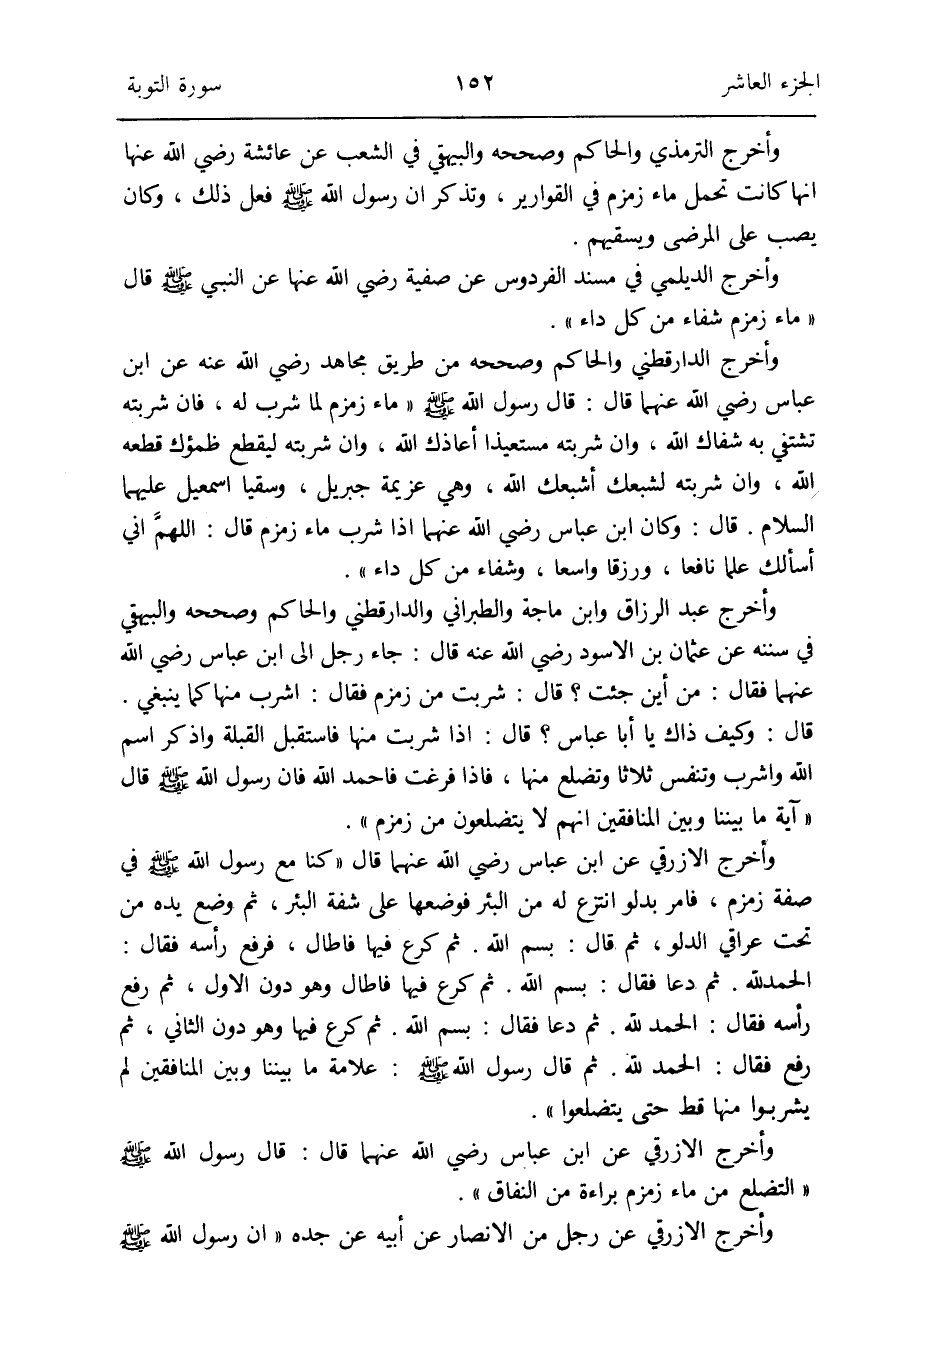 الجزء العاشر ١٥٢ سورة التوبة
وأخرج الترمذي والحاكم وصححه والبيهقي في الشعب عن عائشة رضي الله عنها
انها كانت تحمل ماء زمزم في القوارير ، وتذكر ان رسول الله ﷺ فعل ذلك ، وكان
يصب على المرضى ويسقيهم .
وأخرج الديلمي في مسند الفردوس عن صفية رضي الله عنها عن النبي ﷺ قال
« ماء زمزم شفاء من كل داء » .
وأخرج الدارقطني والحاكم وصححه من طريق مجاهد رضي الله عنه عن ابن
عباس رضي الله عنهما قال : قال رسول الله ﷺ « ماء زمزم لما شرب له ، فان شربته
تشتفي به شفاك الله ، وان شربته مستعيذا أعاذك الله ، وان شربته ليقطع ظمؤك قطعه
الله ، وان شربته لشبعك أشبعك الله ، وهي عزيمة جبريل ، وسقيا اسمعيل عليهما
السلام . قال : وكان ابن عباس رضي الله عنهما اذا شرب ماء زمزم قال : اللهمَّ اني
أسألك علما نافعا ، ورزقا واسعا ، وشفاء من كل داء » .
وأخرج عبد الرزاق وابن ماجة والطبراني والدارقطني والحاكم وصححه والبيهقي
في سننه عن عثمان بن الاسود رضي الله عنه قال : جاء رجل الى ابن عباس رضي الله
عنهما فقال : من أين جئت ؟ قال : شربت من زمزم فقال : اشرب منها كما ينبغي .
قال : وكيف ذاك يا أبا عباس ؟ قال : اذا شربت منها فاستقبل القبلة واذكر اسم
الله واشرب وتنفس ثلاثا وتضلع منها ، فاذا فرغت فاحمد الله فان رسول الله ﷺ قال
« آية ما بيننا وبين المنافقين انهم لا يتضلعون من زمزم » .
وأخرج الازرقي عن ابن عباس رضي الله عنهما قال « كنا مع رسول الله ﷺ في
صفة زمزم ، فامر بدلو انتزع له من البئر فوضعها على شفة البئر ، ثم وضع يده من
تحت عراقي الدلو ، ثم قال : بسم الله . ثم كرع فيها فاطال ، فرفع رأسه فقال :
الحمدلله . ثم دعا فقال : بسم الله . ثم كرع فيها فاطال وهو دون الاول ، ثم رفع
رأسه فقال : الحمد لله . ثم دعا فقال : بسم الله . ثم كرع فيها وهو دون الثاني ، ثم
رفع فقال : الحمد لله . ثم قال رسول الله ﷺ : علامة ما بيننا وبين المنافقين لم
يشربوا منها قط حتى يتضلعوا » .
وأخرج الازرقي عن ابن عباس رضي الله عنهما قال : قال رسول الله ﷺ
« التضلع من ماء زمزم براءة من النفاق » .
وأخرج الازرقي عن رجل من الانصار عن أبيه عن جده « ان رسول الله ﷺ